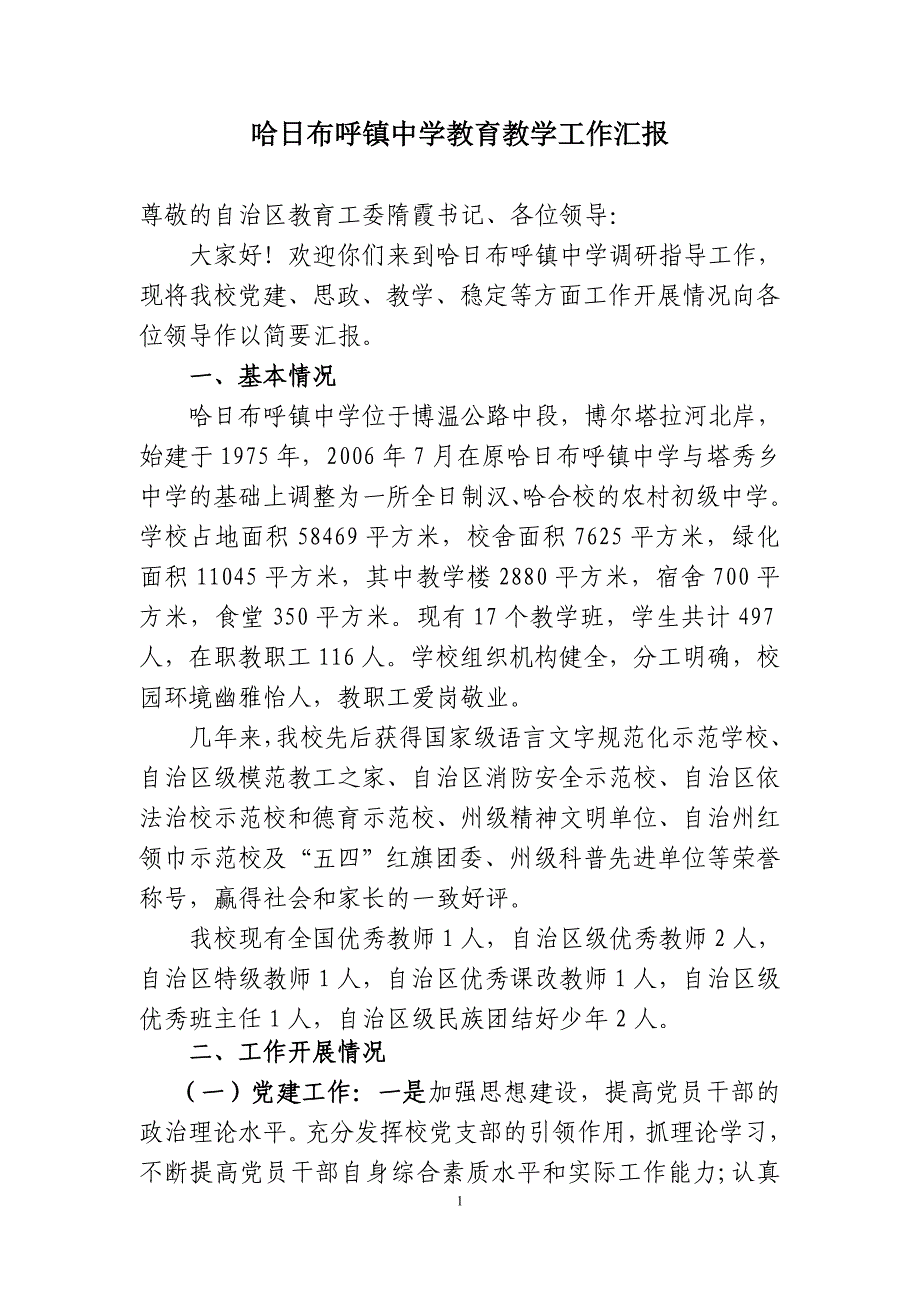 哈日布呼镇中学教育教学工作汇报
尊敬的自治区教育工委隋霞书记、各位领导：
大家好！欢迎你们来到哈日布呼镇中学调研指导工作，
现将我校党建、思政、教学、稳定等方面工作开展情况向各
位领导作以简要汇报。
一、基本情况
哈日布呼镇中学位于博温公路中段，博尔塔拉河北岸，
始建于1975年，2006年7月在原哈日布呼镇中学与塔秀乡
中学的基础上调整为一所全日制汉、哈合校的农村初级中学。
学校占地面积58469平方米，校舍面积7625平方米，绿化
面积11045平方米，其中教学楼2880平方米，宿舍700平
方米，食堂350平方米。现有17个教学班，学生共计497
人，在职教职工116人。学校组织机构健全，分工明确，校
园环境幽雅怡人，教职工爱岗敬业。
几年来，我校先后获得国家级语言文字规范化示范学校、
自治区级模范教工之家、自治区消防安全示范校、自治区依
法治校示范校和德育示范校、州级精神文明单位、自治州红
领巾示范校及“五四”红旗团委、州级科普先进单位等荣誉
称号，赢得社会和家长的一致好评。
我校现有全国优秀教师1人，自治区级优秀教师2人，
自治区特级教师1人，自治区优秀课改教师1人，自治区级
优秀班主任1人，自治区级民族团结好少年2人。
二、工作开展情况
（一）党建工作：一是加强思想建设，提高党员干部的
政治理论水平。充分发挥校党支部的引领作用，抓理论学习，
不断提高党员干部自身综合素质水平和实际工作能力；认真
1